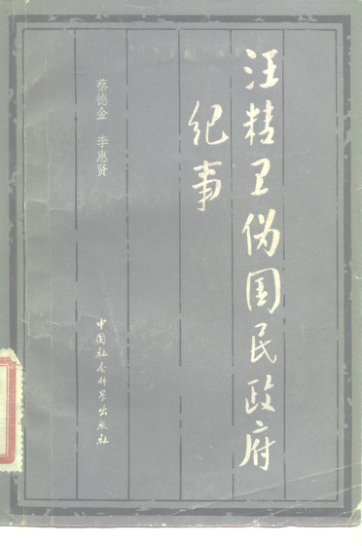 汪精卫伪国民政府
纪事
蔡德金 李惠贤
中国社会科学出版社